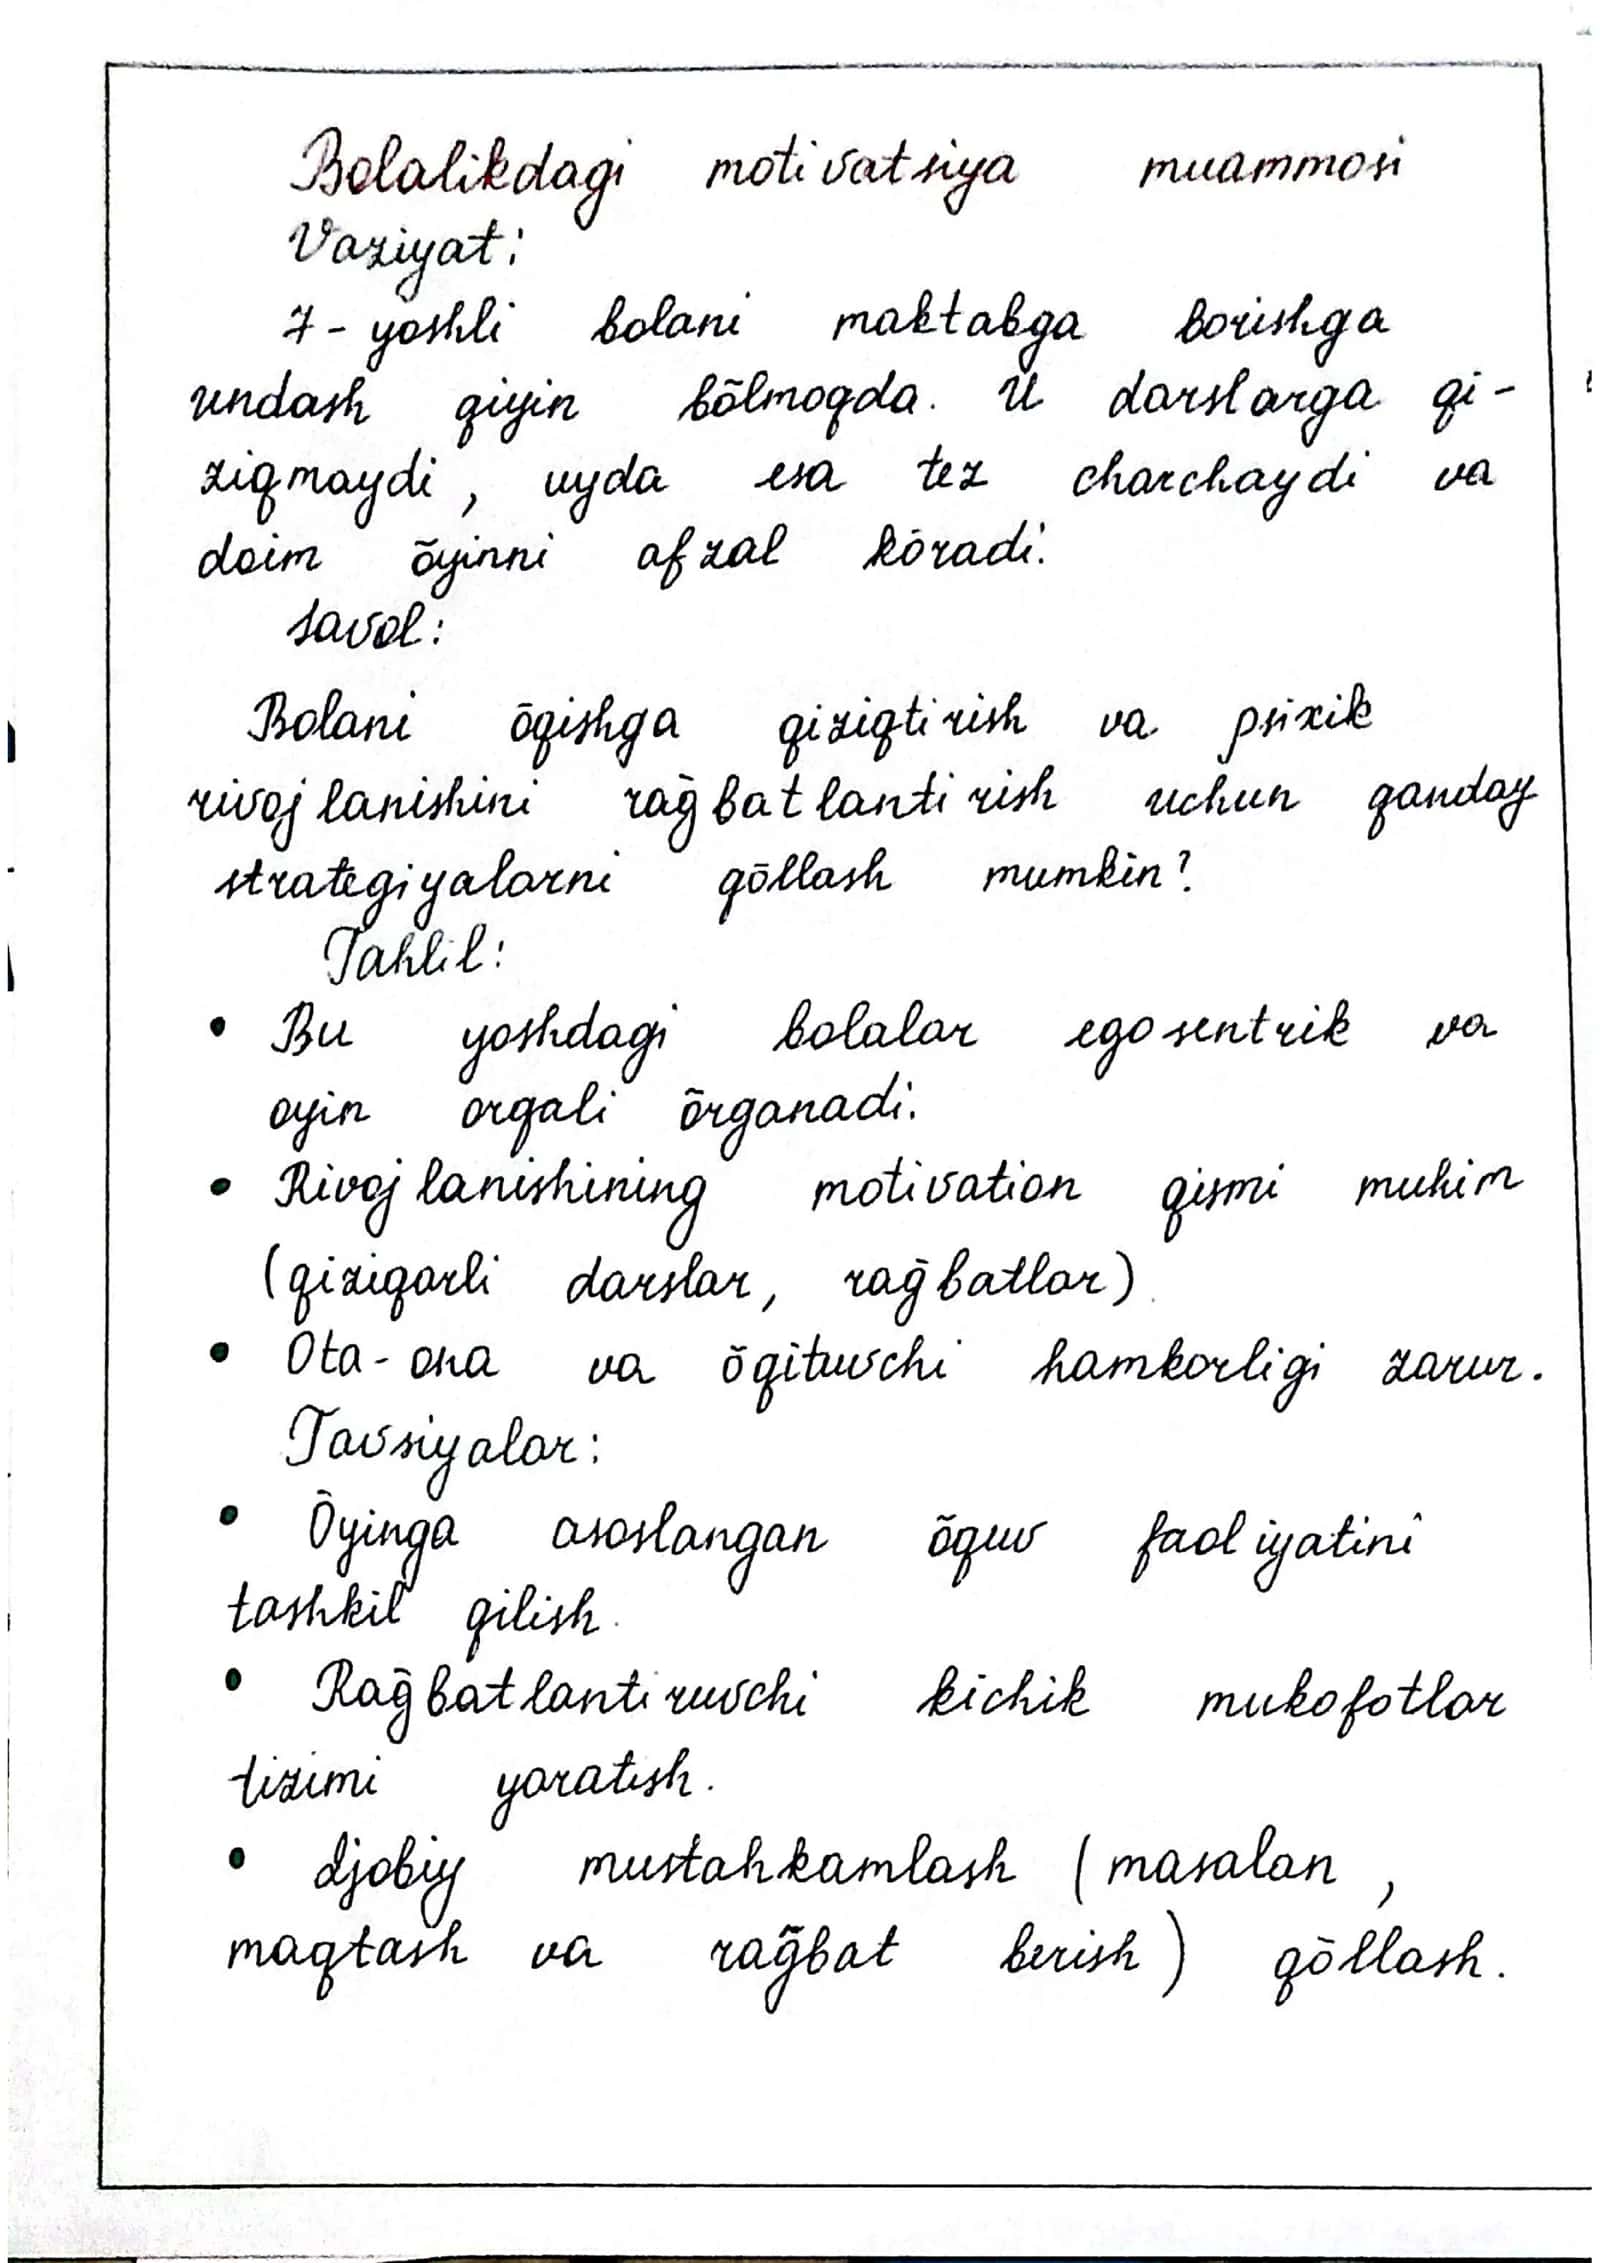 Bolalikdagi motivatsiya muammosi
Vaziyat:
7- yoshli bolani maktabga borishga
undash qiyin bõlmoqda. U darslarga qi-
ziqmaydi, uyda esa tez charchaydi va
doim õyinni afzal kõradi.
Savol:
Bolani õqishga qiziqtirish va psixik
rivojlanishini rag̃batlantirish uchun qanday
strategiyalarni qõllash mumkin?
Tahlil:
• Bu yoshdagi bolalar egosentrik va
oyin orqali õrganadi.
• Rivojlanishining motivation qismi muhim
(qiziqarli darslar, rag̃batlar)
• Ota-ona va õqituvchi hamkorligi zarur.
Tavsiyalar:
• Õyinga asoslangan õquv faoliyatini
tashkil qilish.
• Rag̃batlantiruvchi kichik mukofotlar
tizimi yaratish.
• Ijobiy mustahkamlash (masalan,
maqtash va rag̃bat berish) qõllash.